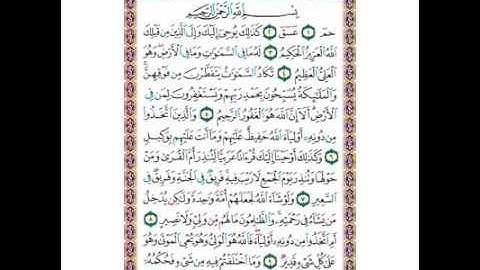 بِسْمِ اللَّهِ الرَّحْمَٰنِ الرَّحِيمِ
حمٓ ١ عٓسٓقٓ ٢ كَذَٰلِكَ يُوحِىٓ إِلَيْكَ وَإِلَى الَّذِينَ مِن قَبْلِكَ
اللَّهُ الْعَزِيزُ الْحَكِيمُ ٣ لَهُۥ مَا فِى السَّمَٰوَٰتِ وَمَا فِى الْأَرْضِ وَهُوَ
الْعَلِىُّ الْعَظِيمُ ٤ تَكَادُ السَّمَٰوَٰتُ يَتَفَطَّرْنَ مِن فَوْقِهِنَّ
وَالْمَلَٰٓئِكَةُ يُسَبِّحُونَ بِحَمْدِ رَبِّهِمْ وَيَسْتَغْفِرُونَ لِمَن فِى
الْأَرْضِ أَلَآ إِنَّ اللَّهَ هُوَ الْغَفُورُ الرَّحِيمُ ٥ وَالَّذِينَ اتَّخَذُوا۟
مِن دُونِهِۦٓ أَوْلِيَآءَ اللَّهُ حَفِيظٌ عَلَيْهِمْ وَمَآ أَنتَ عَلَيْهِم بِوَكِيلٍ
٦ وَكَذَٰلِكَ أَوْحَيْنَآ إِلَيْكَ قُرْءَانًا عَرَبِيًّا لِّتُنذِرَ أُمَّ الْقُرَىٰ وَمَنْ
حَوْلَهَا وَتُنذِرَ يَوْمَ الْجَمْعِ لَا رَيْبَ فِيهِ فَرِيقٌ فِى الْجَنَّةِ وَفَرِيقٌ فِى
السَّعِيرِ ٧ وَلَوْ شَآءَ اللَّهُ لَجَعَلَهُمْ أُمَّةً وَٰحِدَةً وَلَٰكِن يُدْخِلُ
مَن يَشَآءُ فِى رَحْمَتِهِۦ وَالظَّٰلِمُونَ مَا لَهُم مِّن وَلِىٍّ وَلَا نَصِيرٍ ٨
أَمِ اتَّخَذُوا۟ مِن دُونِهِۦٓ أَوْلِيَآءَ فَاللَّهُ هُوَ الْوَلِىُّ وَهُوَ يُحْىِ الْمَوْتَىٰ وَهُوَ
عَلَىٰ كُلِّ شَىْءٍ قَدِيرٌ ٩ وَمَا اخْتَلَفْتُمْ فِيهِ مِن شَىْءٍ فَحُكْمُهُۥٓ